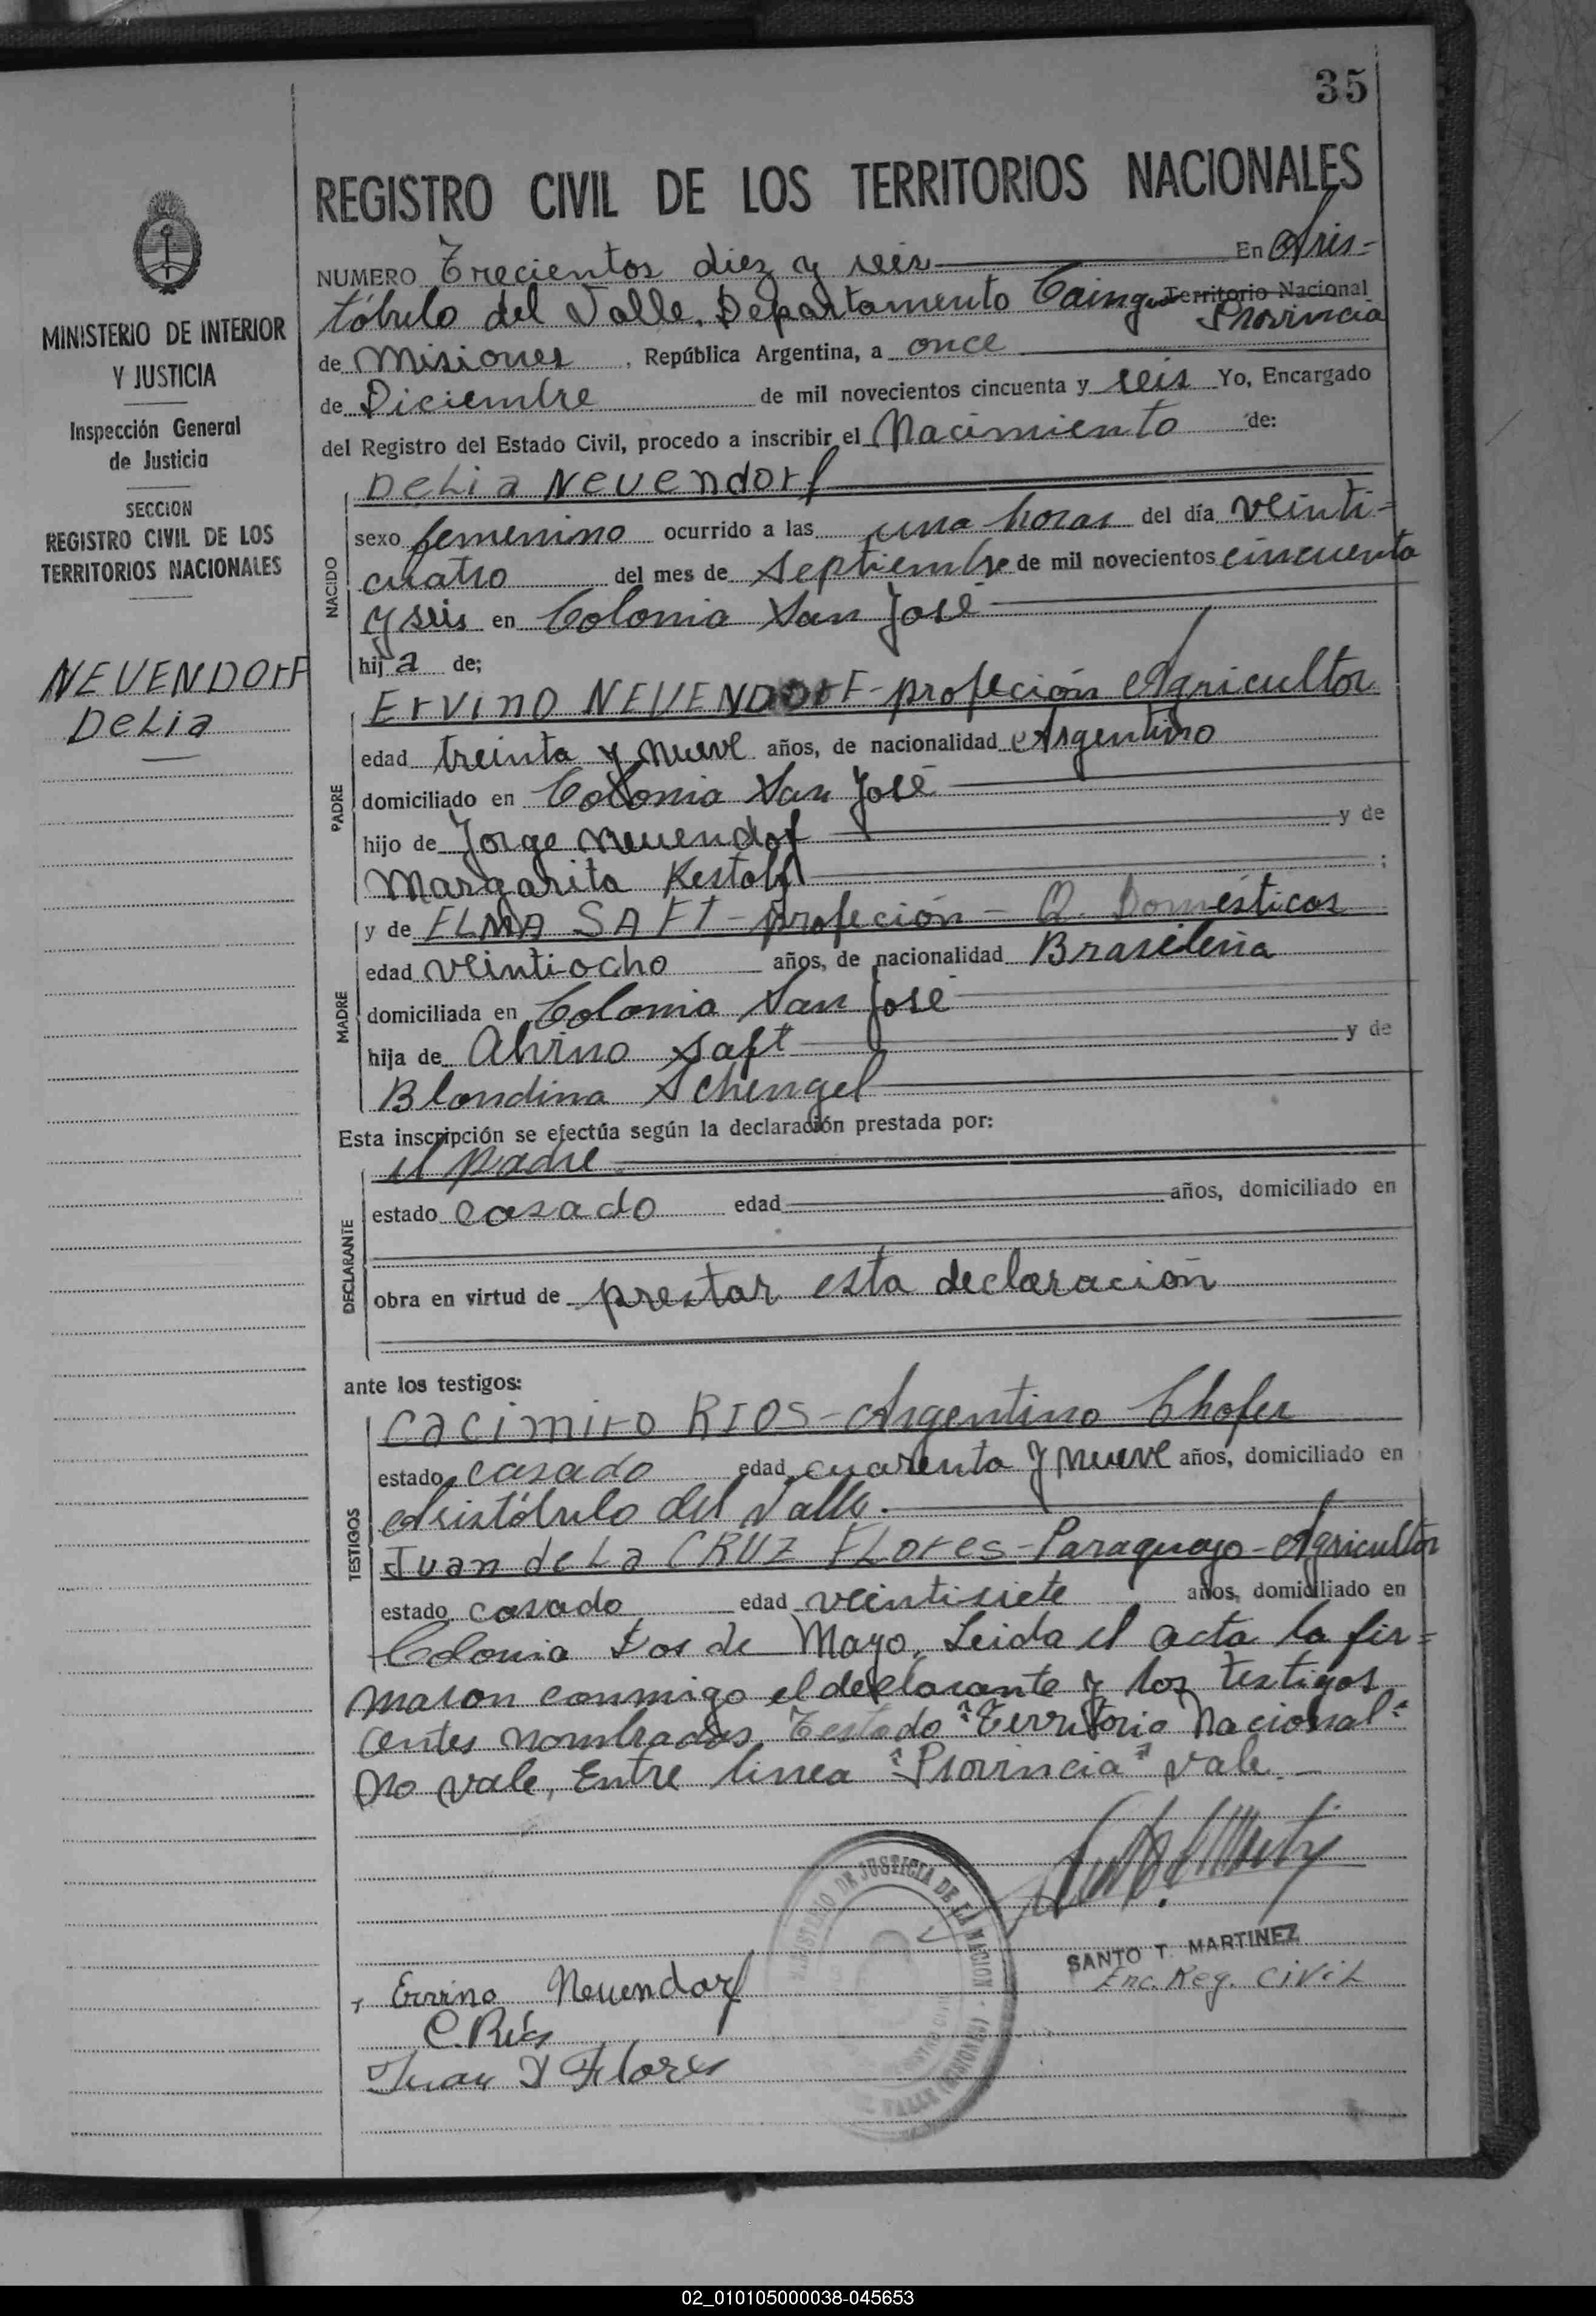 35
REGISTRO CIVIL DE LOS TERRITORIOS NACIONALES
MINISTERIO DE INTERIOR
Y JUSTICIA
Inspección General
de Justicia
SECCION
REGISTRO CIVIL DE LOS
TERRITORIOS NACIONALES
NEUENDOrF
DeLia
NUMERO Trecientos diez y seis En Aris=
tóbulo del Valle, Departamento Caingua Territorio Nacional Provincia
de Misiones, República Argentina, a once
de Diciembre de mil novecientos cincuenta y seis Yo, Encargado
del Registro del Estado Civil, procedo a inscribir el Nacimiento de:
NACIDO
DeLia Neuendorf
sexo femenino ocurrido a las una horas del día veinti=
cuatro del mes de septiembre de mil novecientos cincuenta
y seis en Colonia San José
hija de;
PADRE
Ervino NEUENDOrF - profeción Agricultor
edad treinta y nueve años, de nacionalidad Argentino
domiciliado en Colonia San José
hijo de Jorge Neuendof y de
Margarita ;
MADRE
y de ELMA SAFT - profeción - Q. Domésticos
edad veintiocho años, de nacionalidad Brasileña
domiciliada en Colonia San José
hija de Alvino Saft y de
Blondina Schengel
Esta inscripción se efectúa según la declaración prestada por:
DECLARANTE
el padre
estado casado edad años, domiciliado en
obra en virtud de prestar esta declaración
ante los testigos:
TESTIGOS
Cacimiro RIOS - Argentino Chofer
estado casado edad cuarenta y nueve años, domiciliado en
Aristóbulo del Valle.
Juan de La CRUZ FLores - Paraguayo - Agricultor
estado casado edad veintisiete años, domiciliado en
Colonia Dos de Mayo, Leida el acta la fir=
maron conmigo el declarante y los testigos
antes nombrados, Testado "Territorio Nacional"
no vale, Entre linea "Provincia" vale.-
MINISTERIO DE JUSTICIA DE LA NACION
VALLE (MISIONES)
SANTO T. MARTINEZ
Enc. Reg. CiviL
Ervino Neuendorf
C. Ríos
Juan D Flores
02_010105000038-045653